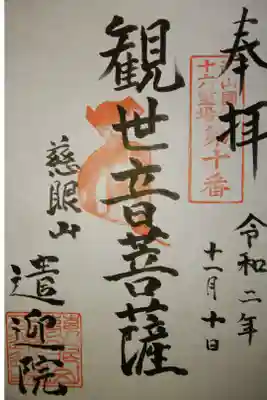 奉拝
十六霊場第十番
令和二年
十一月十日
観世音菩薩
慈眼山
遣迎院